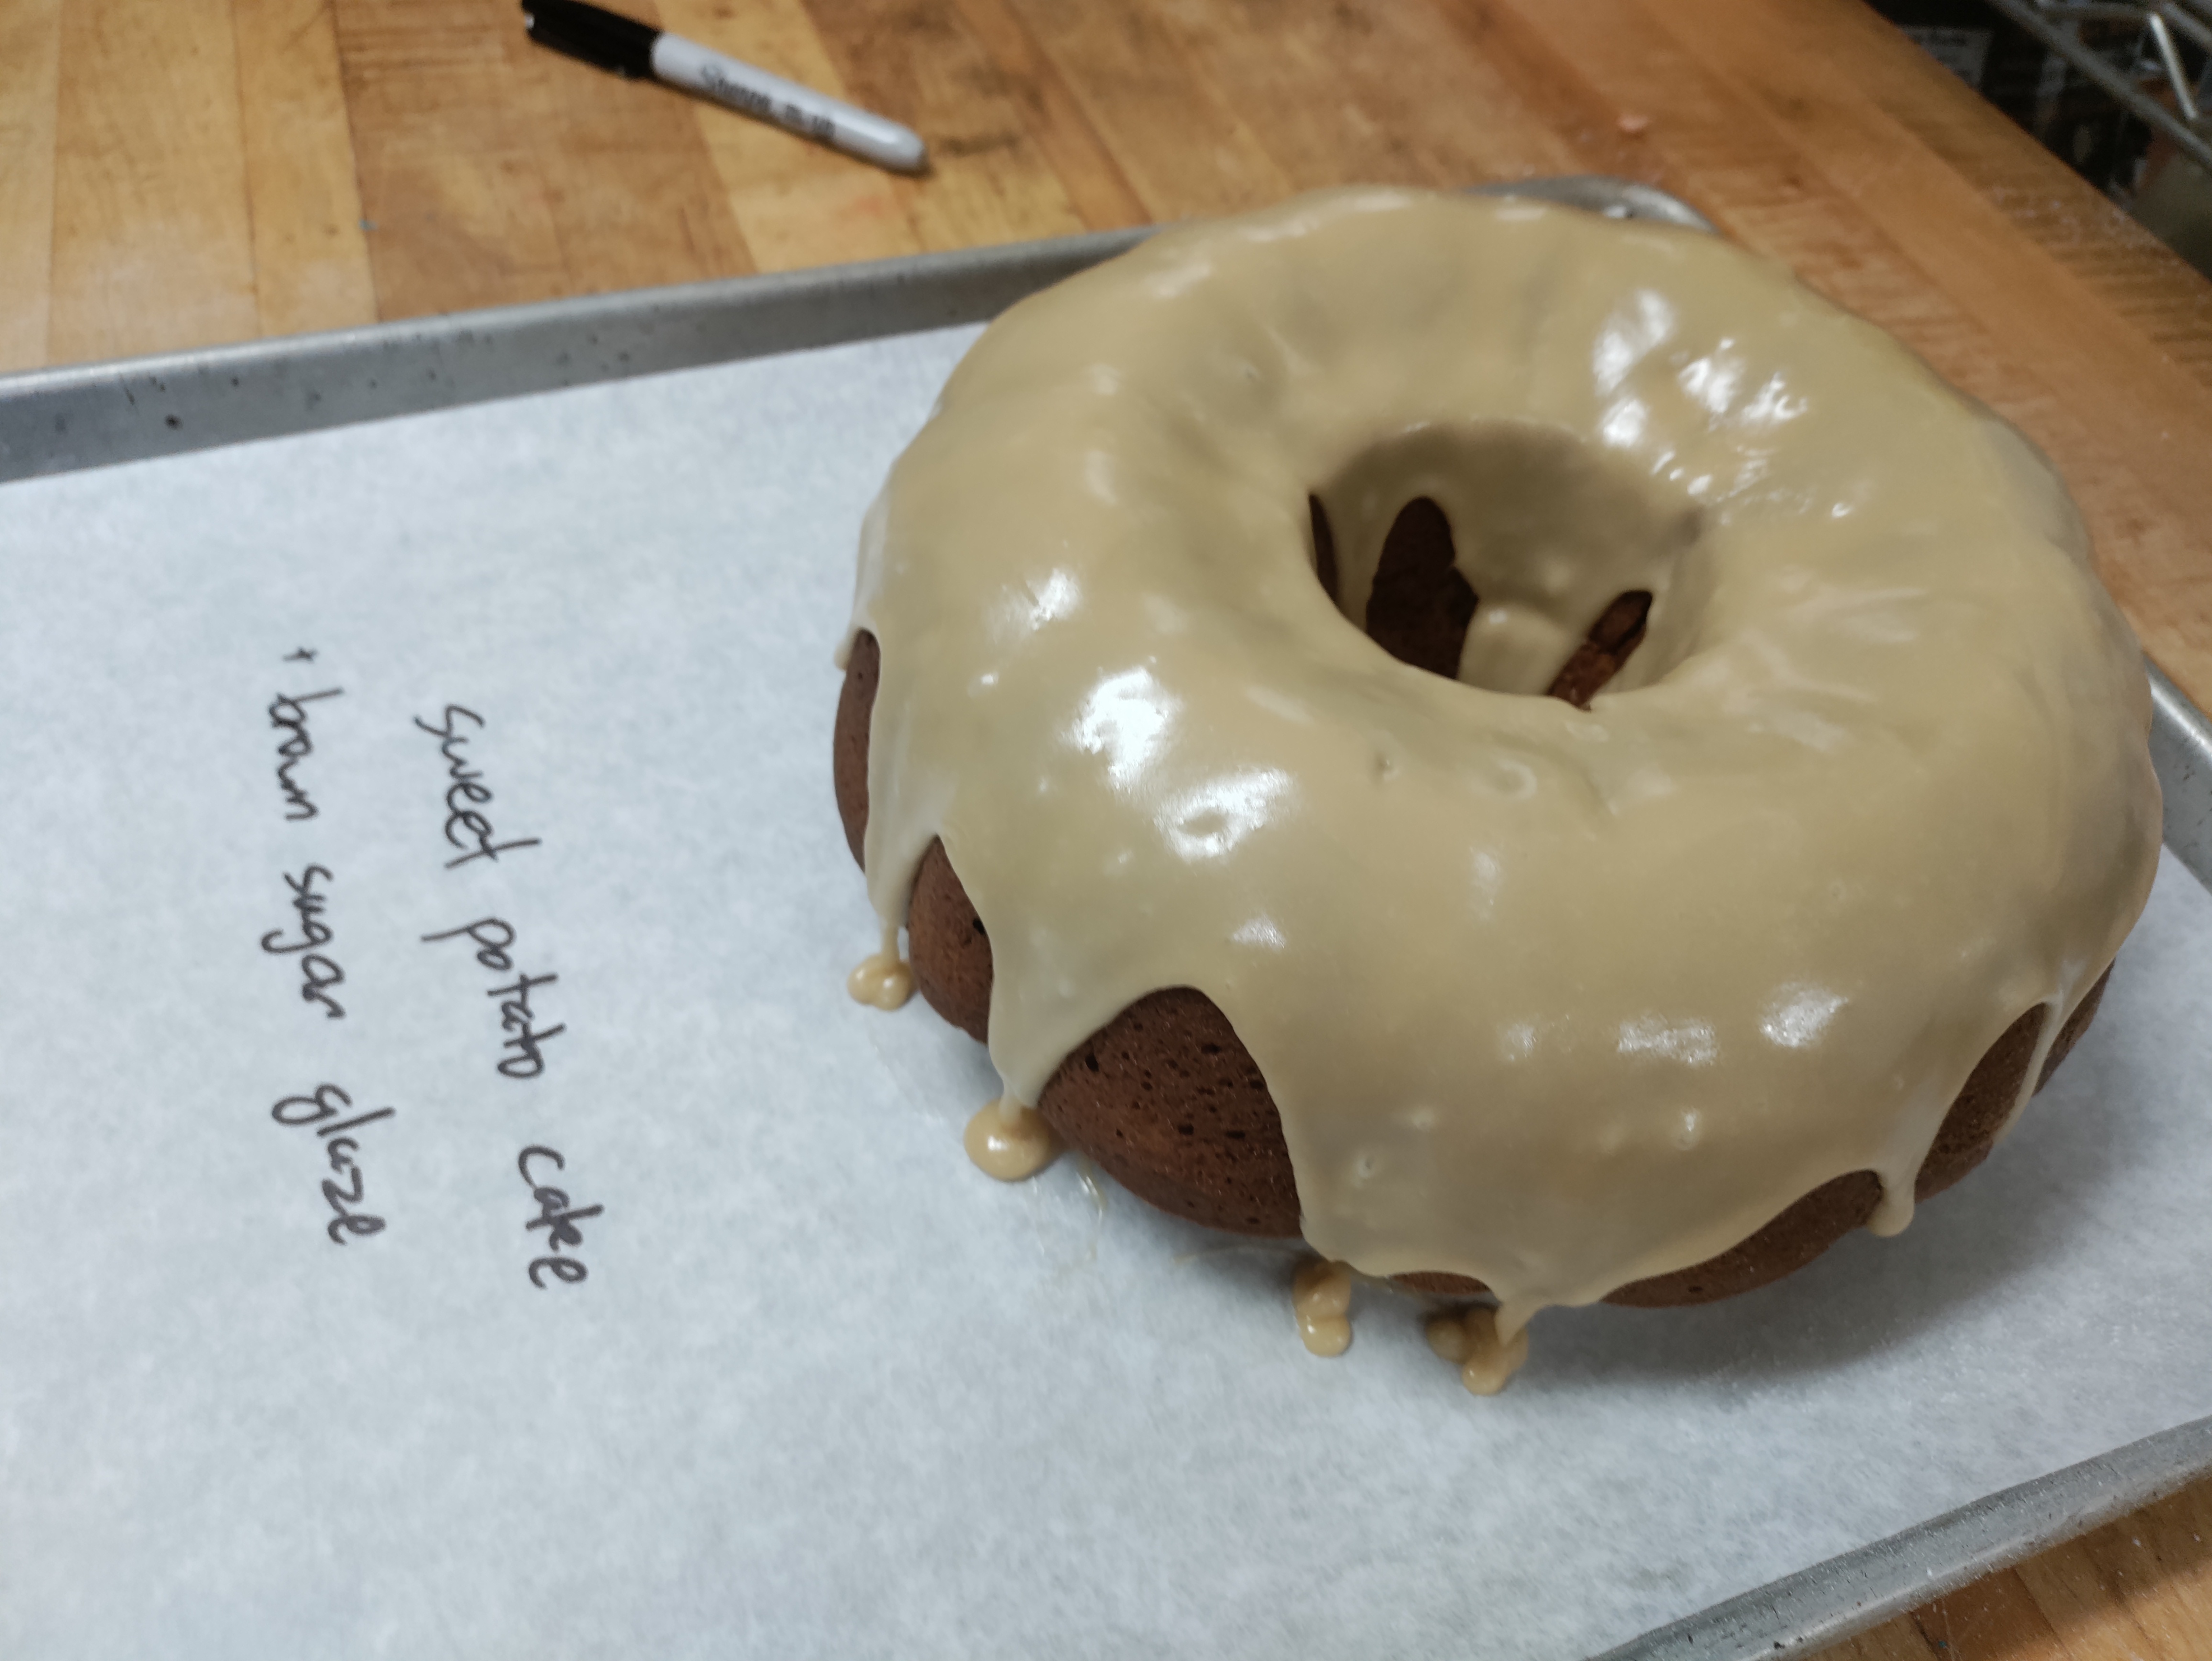 sweet potato cake
+ brown sugar glaze
Sharpie